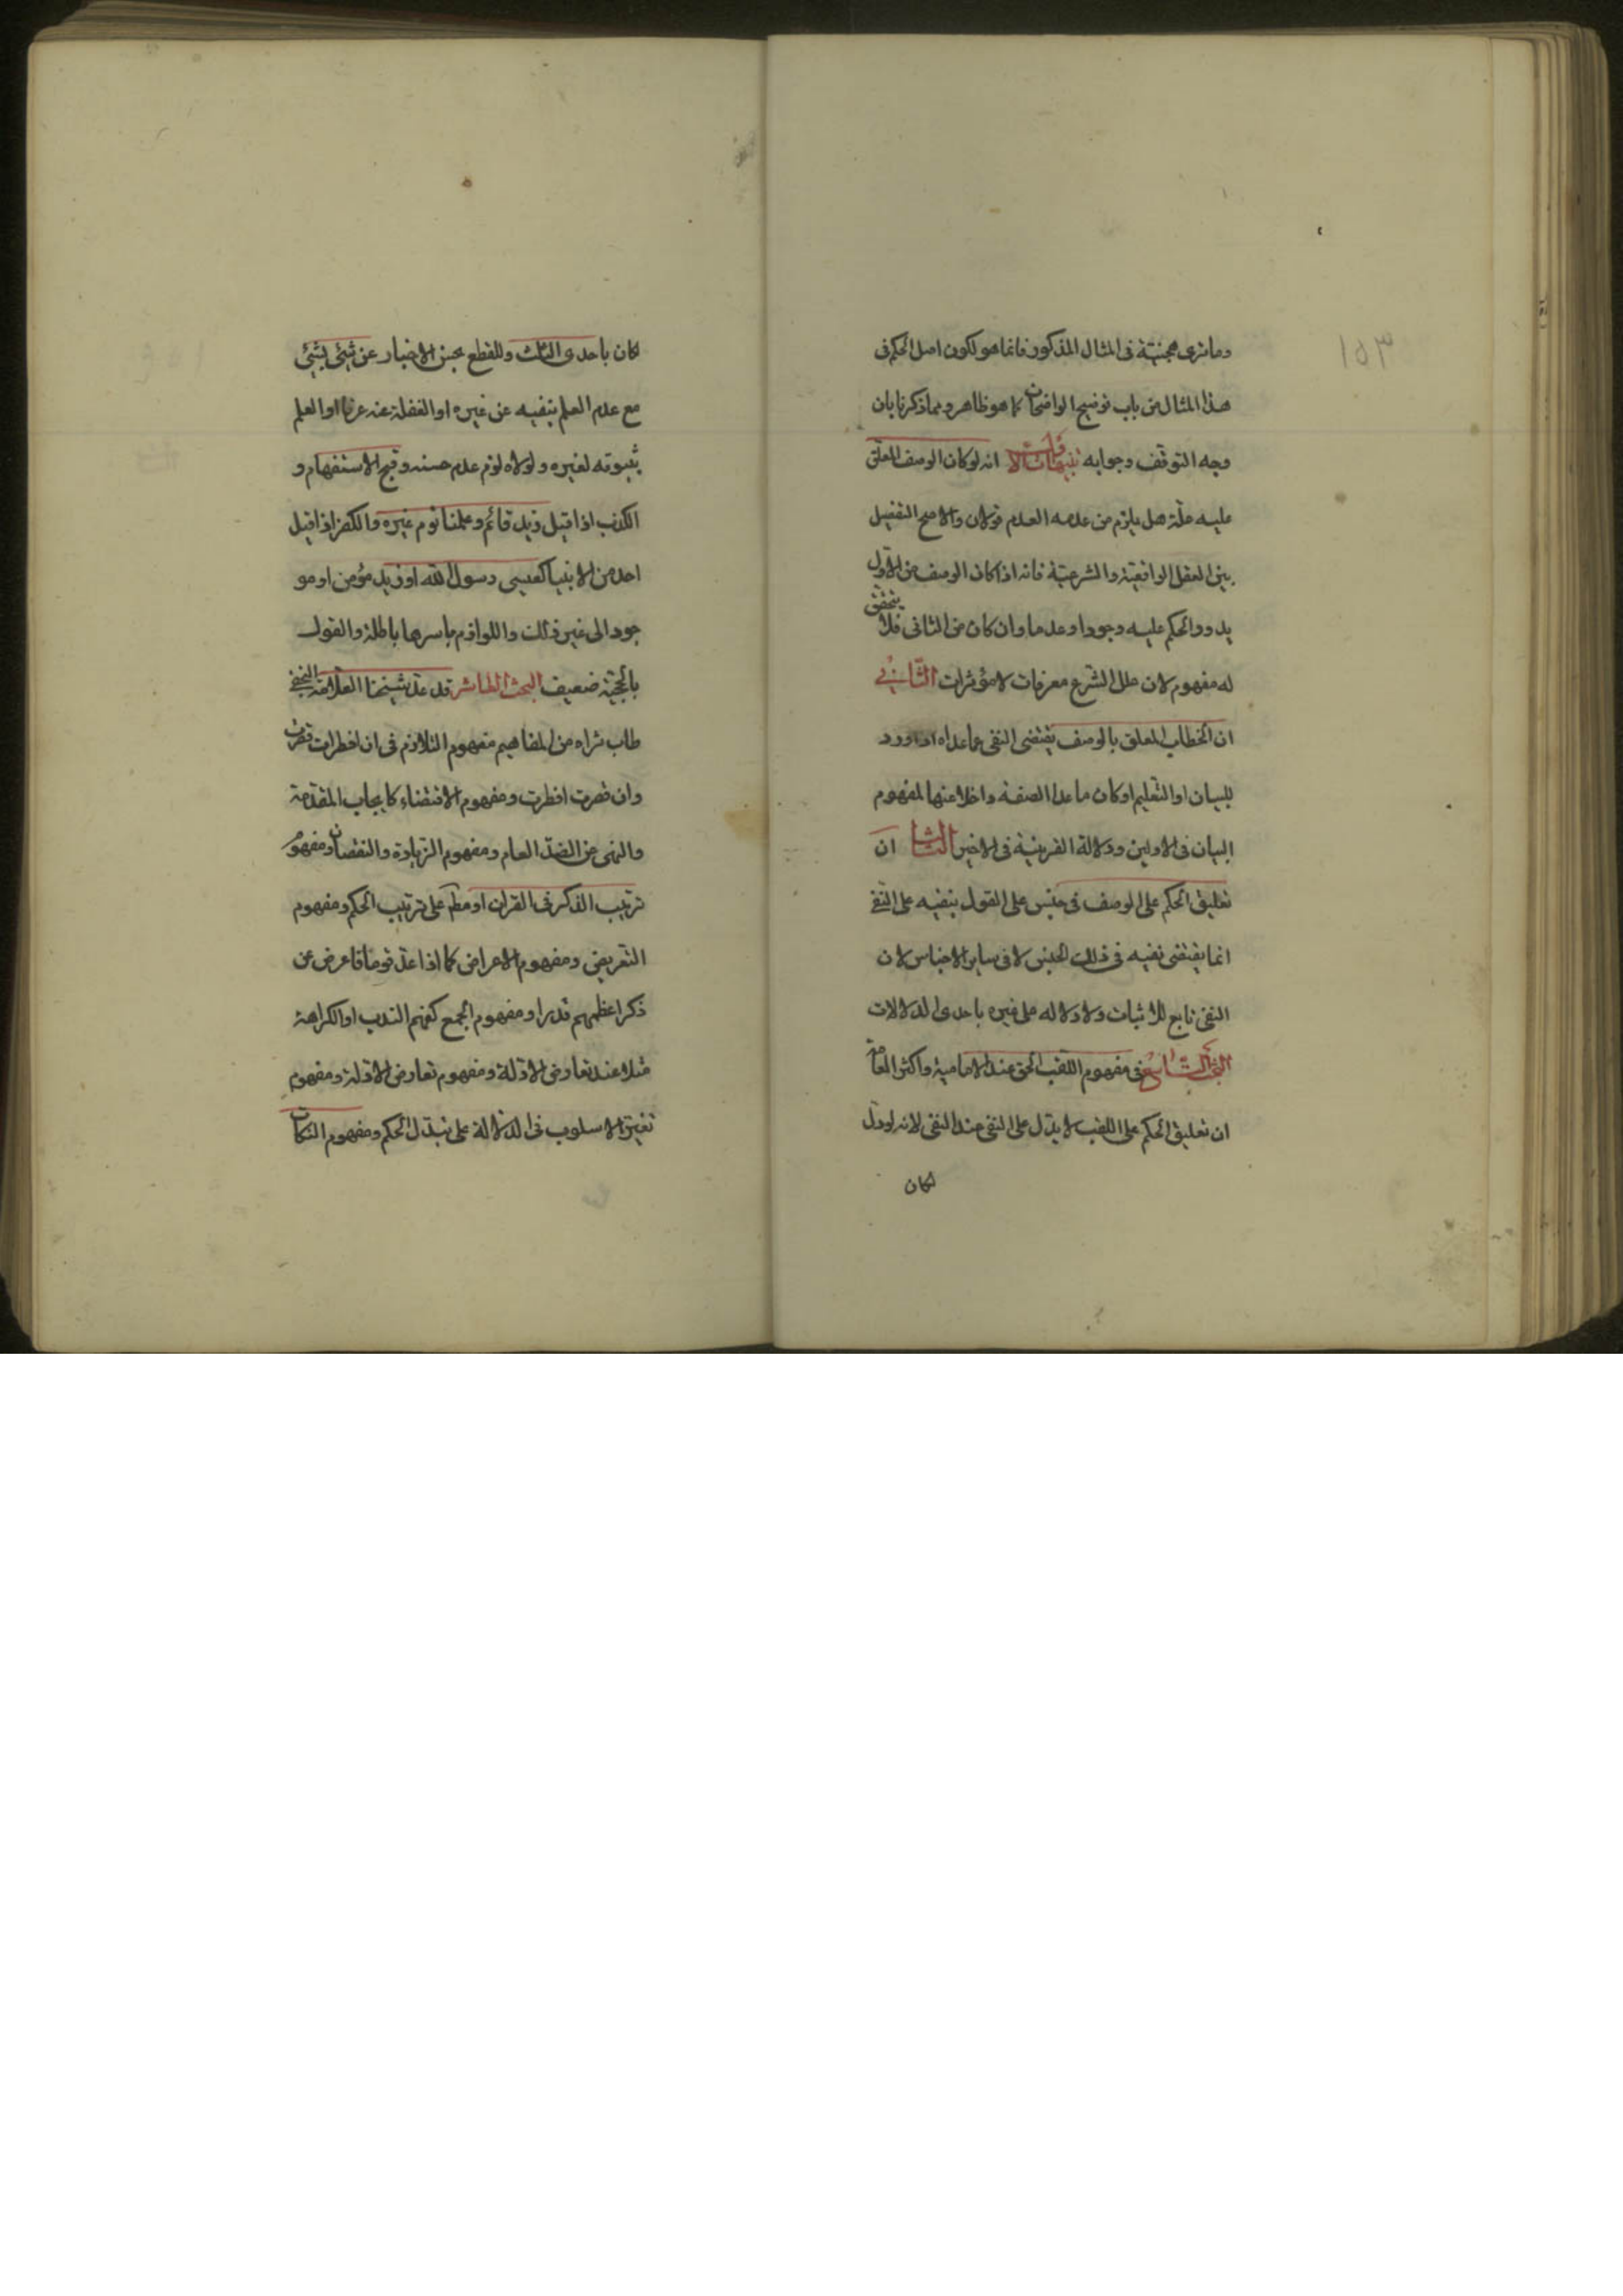 ١٥٣
وما ترى هجنته فى المثال المذكور فانما هو لكون اصل الحكم فى
هذا المثال من باب توضيح الواضحات كما هو ظاهر ومما ذكرنا بان
وجه التوقف وجوابه تنبيهات الاول انه لو كان الوصف المعلق
عليه علة هل يلزم من عدمه العدم قولان والاصح التفصيل
بين العقل الواقعية والشرعية فانه اذا كان الوصف من الاول
يدور الحكم عليه وجودا وعدما وان كان من الثانى فلا يتحقق
له مفهوم لان علل الشرع معرفات لا مؤثرات الثانى
ان الخطاب المعلق بالوصف يقتضى النفى عما عداه اذا ورد
للبيان او التعليم او كان ما عدا الصفة داخلا عنها لمفهوم
البيان فى الاولين ودلالة القرينة فى الاخير الثالث ان
تعليق الحكم على الوصف فى جنس على القول بنفيه على النفى
انما يقتضى نفيه فى ذلك الجنس لا فى ساير الاجناس لان
النفى تابع للاثبات ولا دلاله على غيره باحدى الدلالات
البحث التاسع فى مفهوم اللقب الحق عند الامامية واكثر العامة
ان تعليق الحكم على اللقب لا يدل على النفى عند النفى لانه لو دل
لكان
لكان باحدى الثلث وللقطع بحسن الاخبار عن شئ بشئ
مع عدم العلم بنفيه عن غيره او الغفلة عنه عرفا او العلم
بثبوته لغيره ولولاه لزم عدم حسنه وقبح الاستفهام و
الكذب اذا قيل زيد قائم وعلمنا نوم غيره والكفر اذا قيل
احد من الانبيا كعيسى رسول الله او زيد مؤمن او مو
جود الى غير ذلك واللوازم باسرها باطلة والقول
بالحجية ضعيف البحث العاشر قد عد شيخنا العلامة النجفى
طاب ثراه من المفاهيم مفهوم التلازم فى ان افطرات قصرت
وان قصرت افطرت ومفهوم الاقتضاء كايجاب المقدمة
والنهى عن الضد العام ومفهوم الزيادة والنقصان ومفهوم
ترتيب الذكر فى القران او مط على ترتيب الحكم ومفهوم
التعريض ومفهوم الاعراض كما اذا عد قوما فاعرض عن
ذكر اعظمهم قدرا ومفهوم الجمع كفهم الندب او الكراهة
مثلا عند تعارض الادلة ومفهوم تعارض الادلة ومفهوم
تغيير الاسلوب فى الدلالة على تبدل الحكم ومفهوم النكات